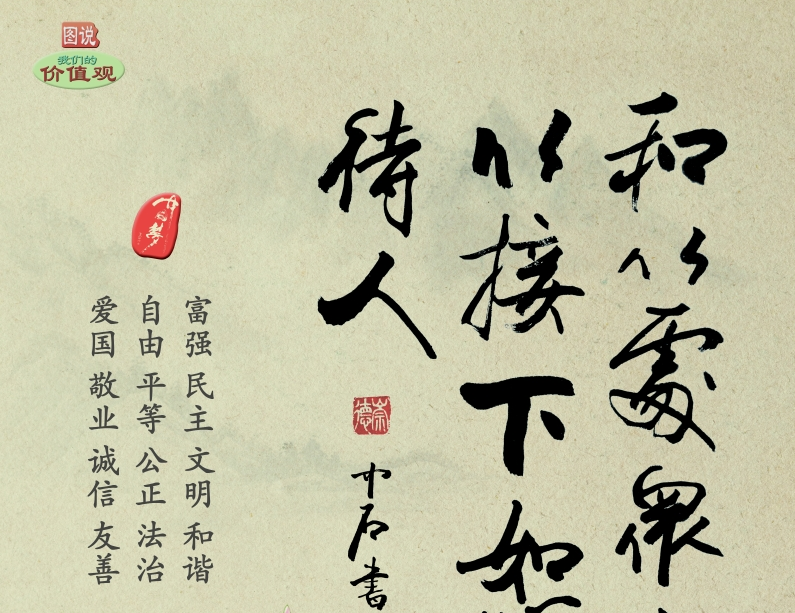 图说
我们的
价值观
和以處衆
以接下如
待人
崇德
中石書
中国梦
富强 民主 文明 和谐
自由 平等 公正 法治
爱国 敬业 诚信 友善